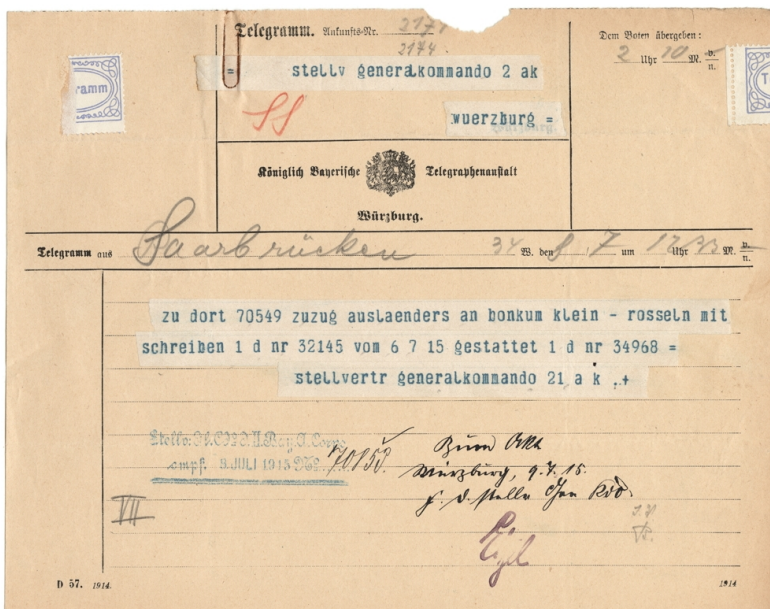 Telegramm. Ankunfts-Nr. 2171
2174
Dem Boten übergeben:
2 Uhr 10 M. v./n.
ramm
T
= stellv generalkommando 2 ak
wuerzburg =
Königlich Bayerische Telegraphenanstalt
Würzburg.
Telegramm aus Saarbrücken 34 W. den 8. 7 um 12 Uhr M. v./n.
zu dort 70549 zuzug auslaenders an bonkum klein - rosseln mit
schreiben 1 d nr 32145 vom 6 7 15 gestattet 1 d nr 34968 =
stellvertr generalkommando 21 a k . +
Stellv. G. Kdo. II. Bay. A. Corps
empf. 9. JULI 1915 No. 70853.
Zum Akt
Würzburg, 9.7.15.
F. d. stellv Gen Kdo.
VII
D 57. 1914.
1914